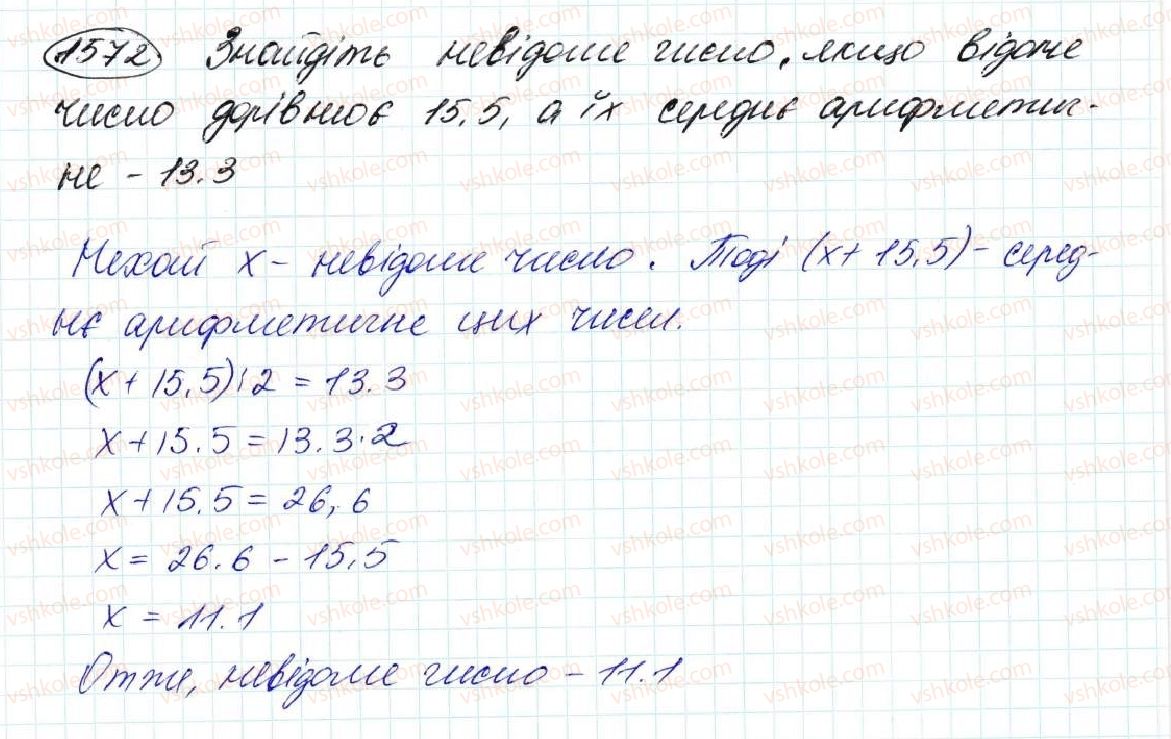 1572 Знайдіть невідоме число, якщо відоме
число дорівнює 15,5, а їх середнє арифметич-
не - 13.3
Нехай х - невідоме число. Тоді (х + 15,5) - серед-
нє арифметичне цих чисел.
(х + 15,5):2 = 13.3
х + 15.5 = 13.3·2
х + 15.5 = 26,6
х = 26.6 - 15,5
х = 11.1
Отже, невідоме число - 11.1